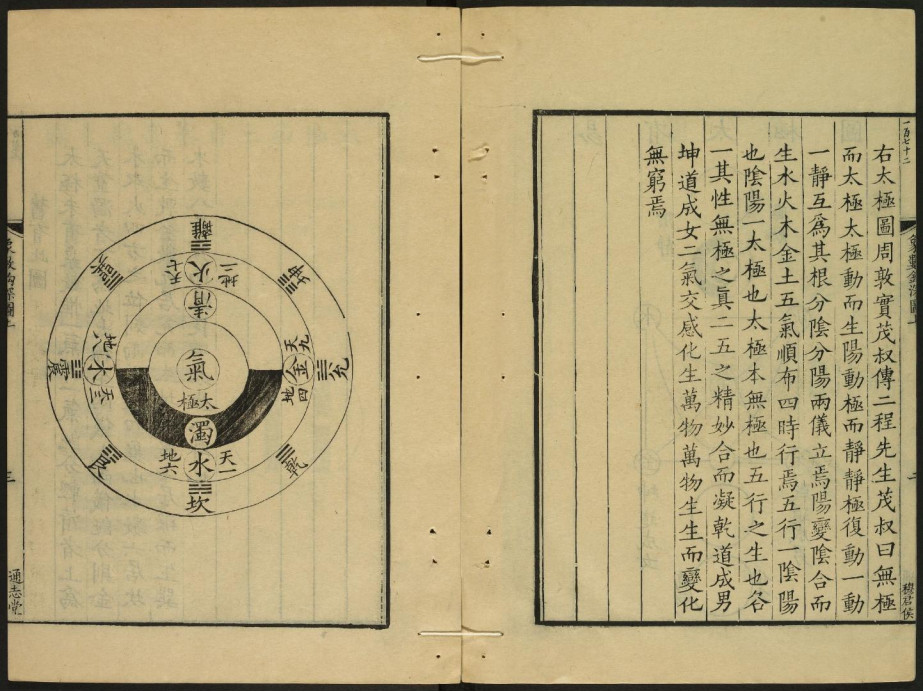 一百七十二
右太極圖周敦實茂叔傳二程先生茂叔曰無極
而太極太極動而生陽動極而靜靜極復動一動
一靜互爲其根分陰分陽兩儀立焉陽變陰合而
生水火木金土五氣順布四時行焉五行一陰陽
也陰陽一太極也太極本無極也五行之生也各
一其性無極之眞二五之精妙合而凝乾道成男
坤道成女二氣交感化生萬物萬物生生而變化
無窮焉
穆君侯
離
火
地二
天七
清
坤
兌
金
天九
地四
乾
坎
水
天一
地六
濁
艮
震
木
地八
天三
巽
氣
太極
三
通志堂